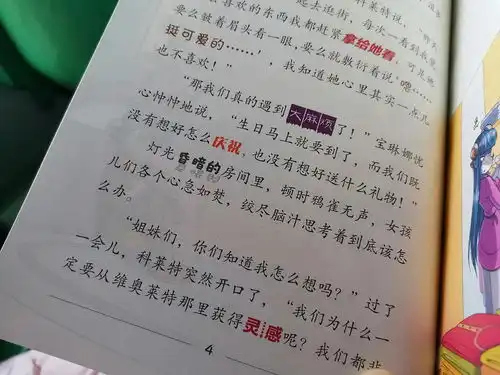 起去逛街，每次一看到我
喜欢的东西我都赶紧拿给她看，可是她
要么皱着眉头看一眼，要么就敷衍着说“嗯……
挺可爱的……’，我知道她心里其实一点儿
也不喜欢！”
“那我们真的遇到大麻烦了！”宝琳娜忧
心忡忡地说，“生日马上就要到了，而我们既
没有想好怎么庆祝，也没有想好送什么礼物！”
灯光昏暗的房间里，顿时鸦雀无声，女孩
儿们各个心急如焚，绞尽脑汁思考着到底该怎
么办。
“姐妹们，你们知道我怎么想吗？”过了
一会儿，科莱特突然开口了，“我们为什么一
定要从维奥莱特那里获得灵感呢？我们都
4